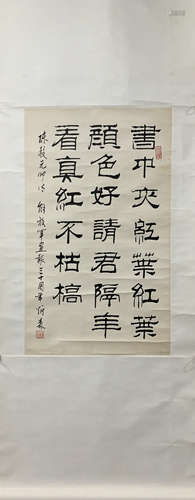 書中夾紅葉紅葉
顏色好請君隔年
看真紅不枯槁
陳毅元帥詩 解放軍畫報三十周年 何義